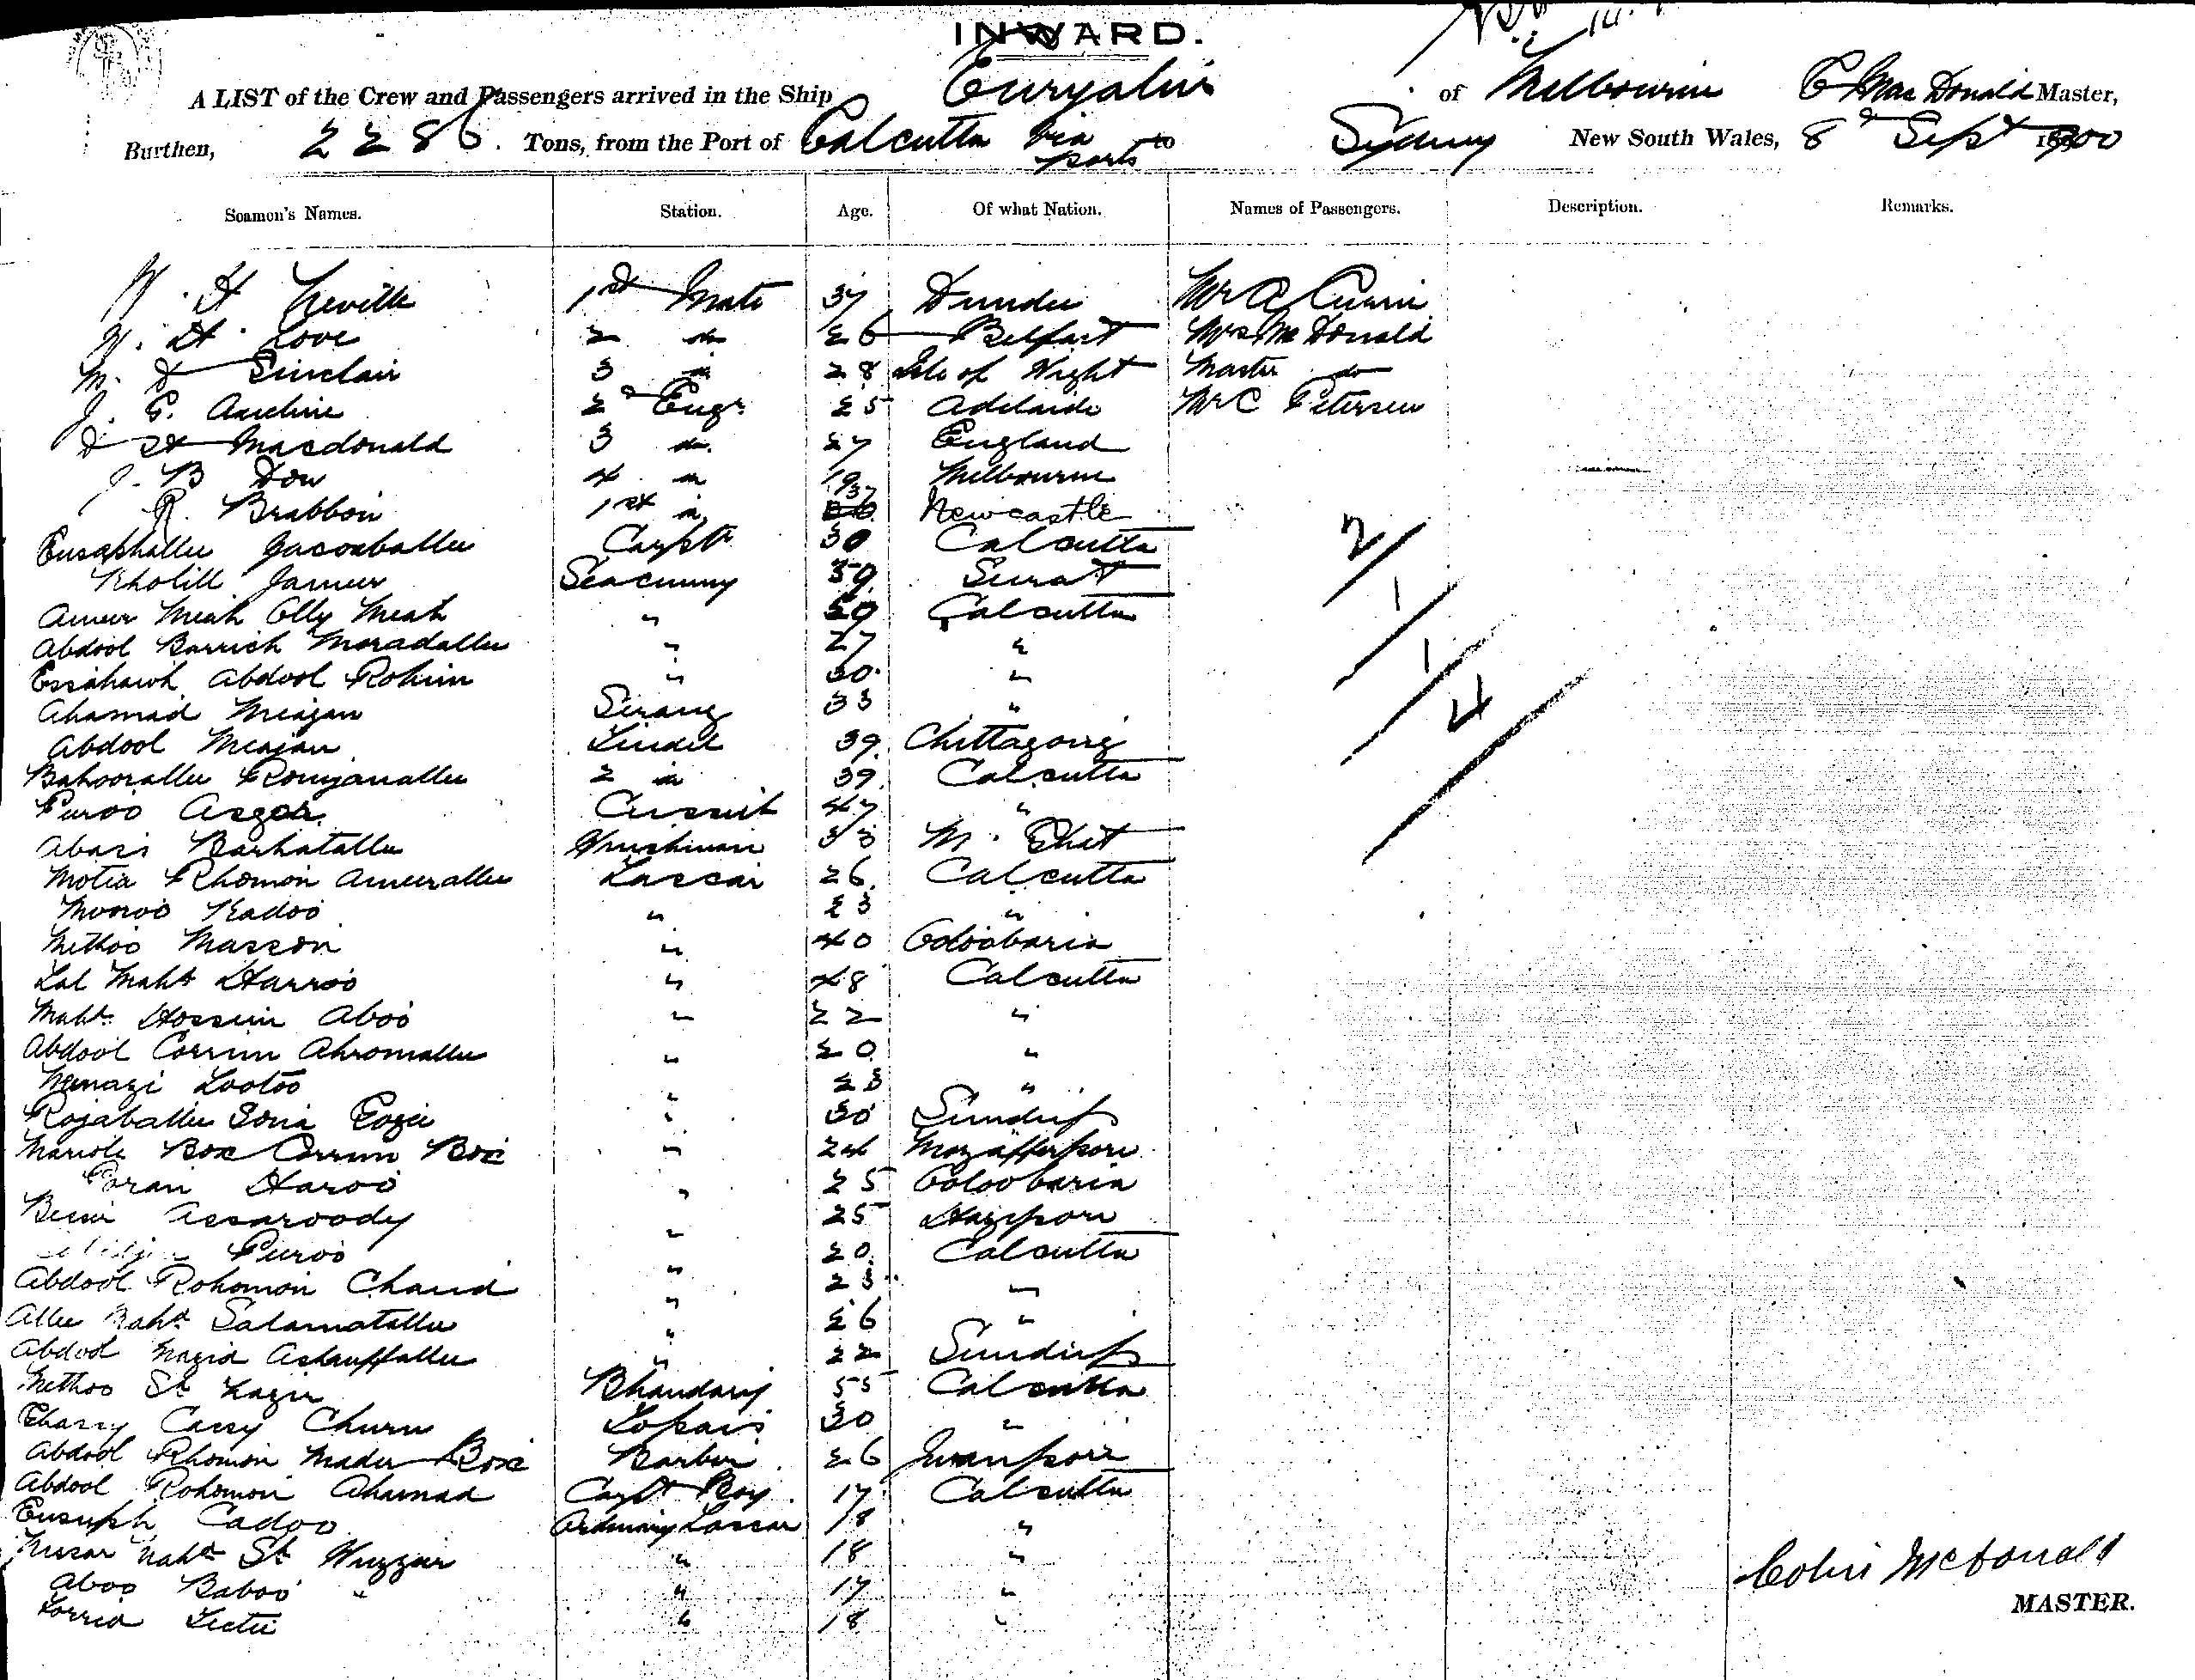 INWARD.
A LIST of the Crew and Passengers arrived in the Ship Euryalus of Melbourne C Mac Donald Master,
Burthen, 2286. Tons, from the Port of Calcutta via ports to Sydney New South Wales, 8th Sept 1900
Seamen's Names. Station. Age. Of what Nation. Names of Passengers. Description. Remarks.
H Neville 1st Mate 37 Dundee Mr A Currie
H. Love 2 do 26 Belfast Mrs McDonald
M. Sinclair 3 do 28 Isle of Wight Master do
J. G. 2d Engr 25 Adelaide Mr C Petersen
Macdonald 3 do 27 England
J. B Dow 4 do 19 Melbourne
R. Brabbon 1st do 37 Newcastle
Eusaphallee Carptr 30 Calcutta 2
Kholill Jameer Seacunny 39 Surat
Ameer Meah Olly Meah " 50 Calcutta 1
Abdool Barrick Moradallee " 27 "
Essahawk Abdool Rohim " 30 " 1
Ahamad Meajan Serang 33 " 4
Abdool Meajan Tindel 39 Chittagong
Bahoorallee Romjanallee 2 do 39 Calcutta
Furoo Asgar Cussub 47 "
Abass Barkatallee 33 M. Ghat
Motia Rhomon Ameerallee Lascar 26 Calcutta
Kadoo " 23 "
Methoo Masson " 40 Ooloobaria
Lal Maht Harroo " 48 Calcutta
Maht Hossein Aboo " 22 "
Abdool Corrim Ahromallee " 20 "
Nemazi Lootoo " 23 "
Rojaballee Sona Gozie " 30 Sundip
Box Corrim Box " 24 Mozafferpore
Poran Haroo " 25 Ooloobaria
Assaroody " 25 Hazipore
Furoo " 20 Calcutta
Abdool Rohomon Chand " 23 "
Allee Maht Salamatallee " 26 "
Abdool Mazid Ashruffallee " 22 Sundip
Methoo St Bhandary 55 Calcutta
Churn Topass 30 "
Abdool Rhomon Mader Box Barber 26 Juanpore
Abdool Rohomon Ahamad Carptr Boy 17 Calcutta
Eusuph Cadoo Ordinary Lascar 18 "
Maht St Wuzzeer " 18 "
Aboo Baboo " " 17 "
" 18 "
Colin McDonald
MASTER.